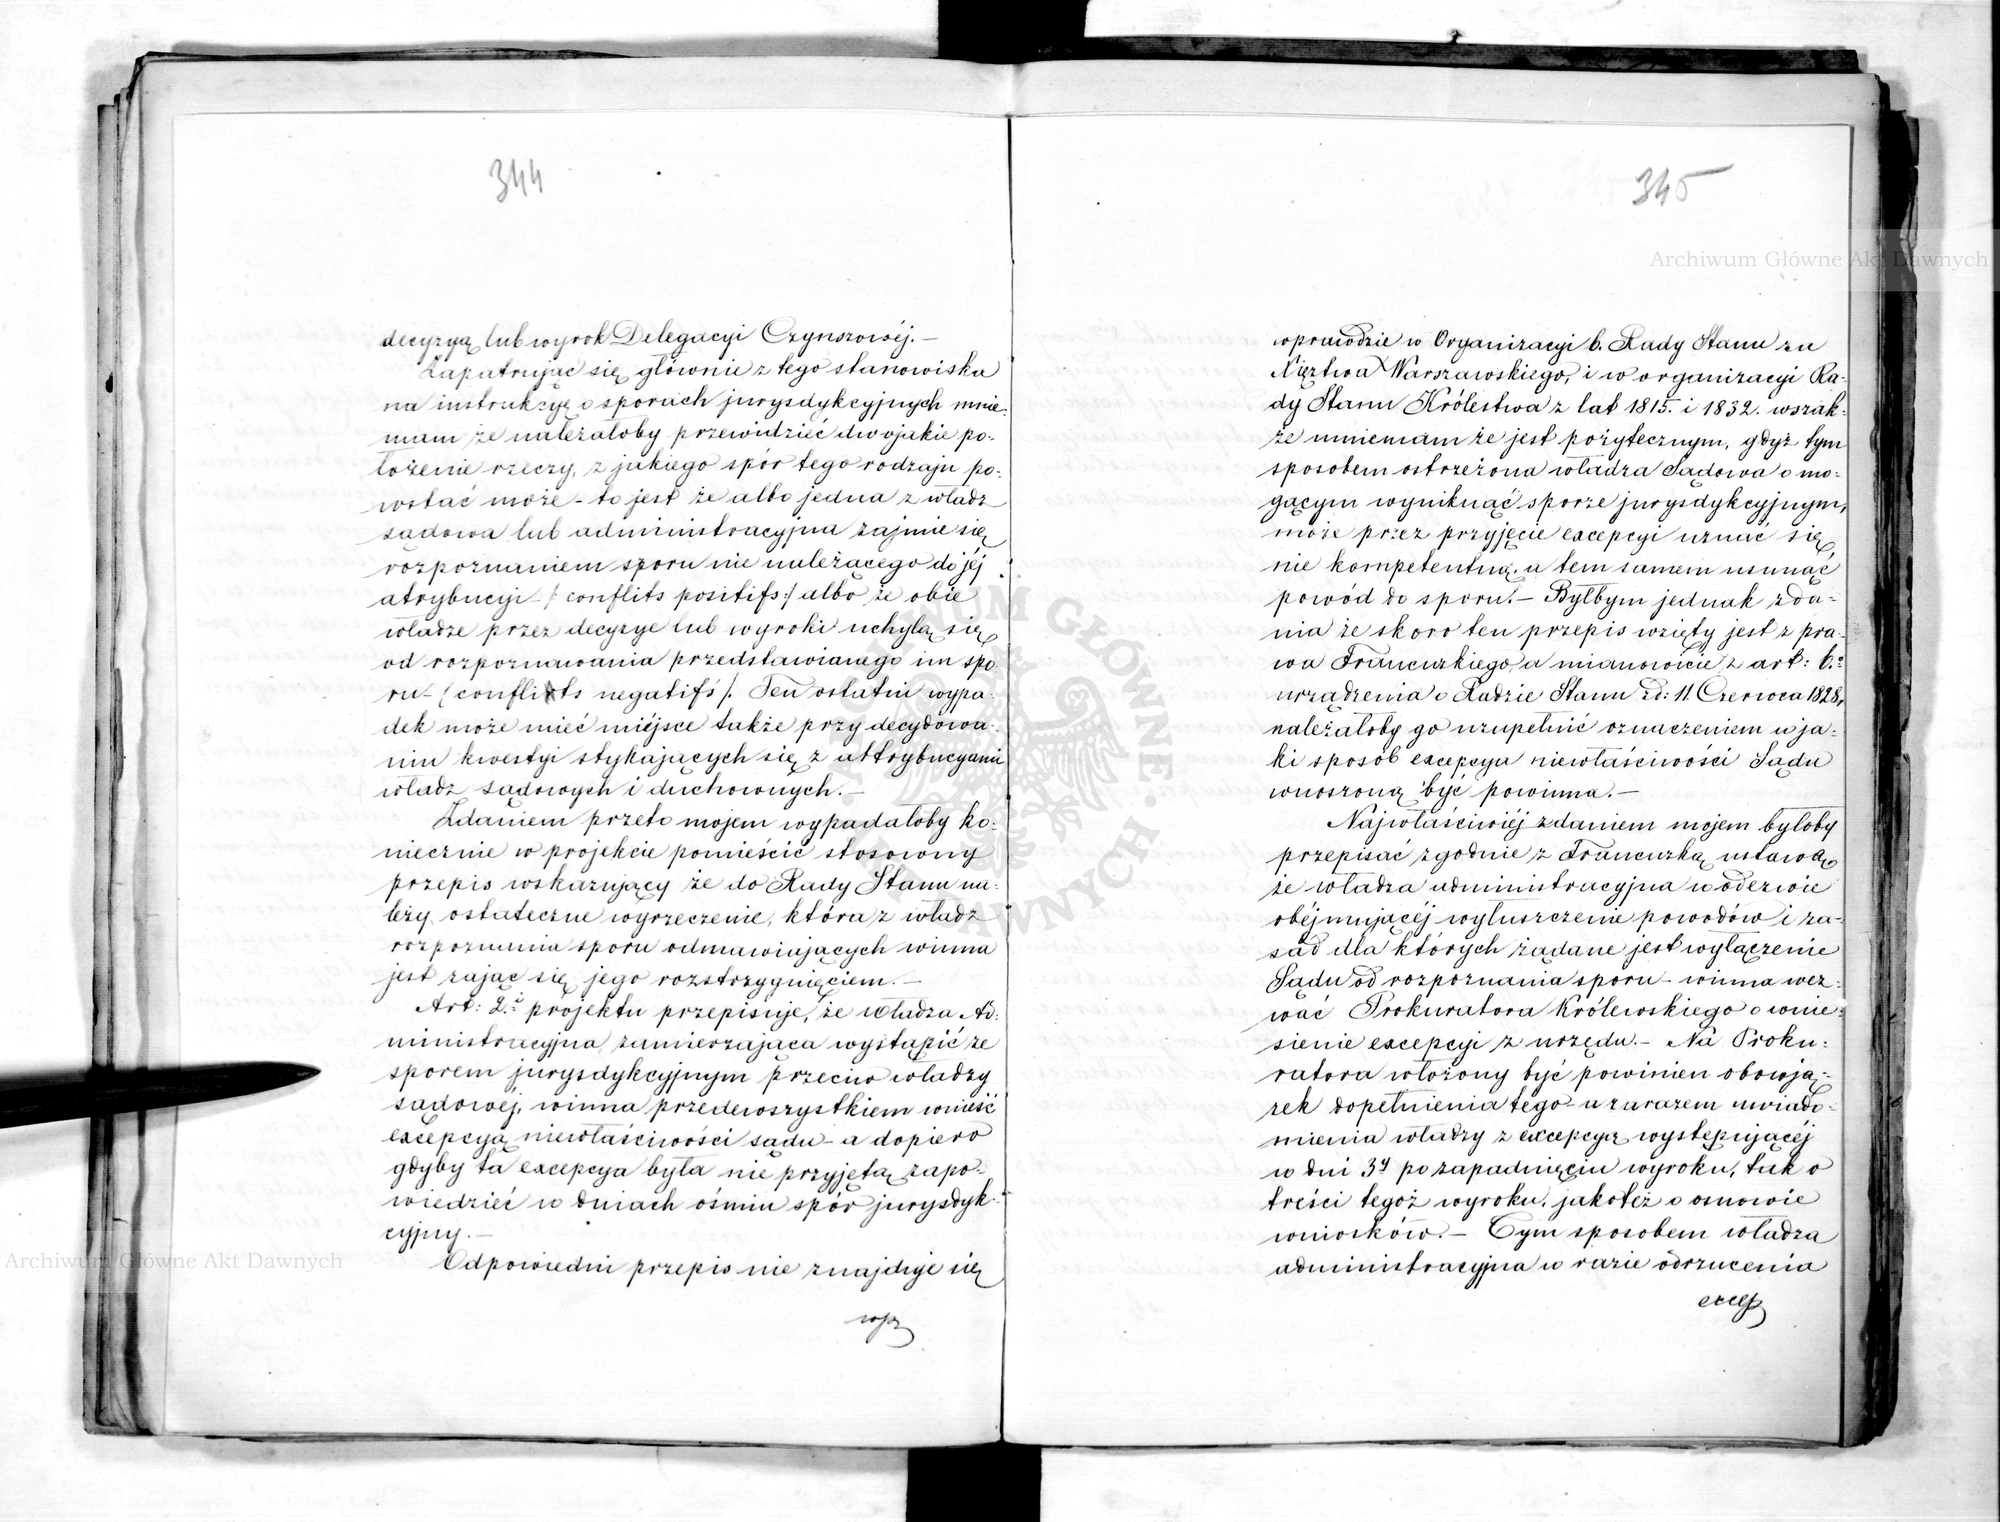 344
decyzyą lub wyrok Delegacyi Czynszowéj. –
Zapatrując się głównie z tego stanowiska
na instrukcyę o sporach jurysdykcyjnych mnie-
mam że należałoby przewidzieć dwojakie po-
łożenie rzeczy, z jakiego spór tego rodzaju po-
wstać może – to jest że albo jedna z władz
sądowa lub administracyjna zajmie się
rozpoznaniem sporu nie należącego do jéj
atrybucyi – /: conflits positifs :/ albo że obie
władze przez decyzye lub wyroki uchylą się
od rozpoznawania przedstawianego im spo-
ru – /conflikts negatifs/. Ten ostatni wypa-
dek może mieć miéjsce także przy decydowa-
niu kwestyi stykających się z attrybucyami
władz sądowych i duchownych. –
Zdaniem przeto mojem wypadałoby ko-
niecznie w projekcie pomieścić stosowny
przepis wskazujący że do Rady Stanu na-
leży ostateczne wyrzeczenie, która z władz
rozpoznania sporu odmawiających winna
jest zająć się jego rozstrzygnięciem. –
Art: 2.i projektu przepisuje, że władza Ad-
ministracyjna zamierzająca wystąpić ze
sporem jurysdykcyjnym przeciw władzy
sądowéj, winna przedewszystkiem wnieść
excepcyą niewłaściwości sądu – a dopiero
gdyby ta excepcya była nie przyjętą zapo-
wiedzieć w dniach ośmiu spór jurysdyk-
cyjny. –
Odpowiedni przepis nie znajduje się
wpr
345
wprawdzie w Organizacyi b. Rady Stanu za
Xięztwa Warszawskiego, i w organizacyi Ra-
dy Stanu Królestwa z lat 1815. i 1832. wszak-
że mniemam że jest pożytecznym, gdyż tym
sposobem ostrzeżona władza Sądowa o mo-
gącym wyniknąć sporze jurysdykcyjnym,
może przez przyjęcie excepcyi uznać się
nie kompetentną, a tem samem usunąć
powód do sporu. – Byłbym jednak zda-
nia że skoro ten przepis wzięty jest z pra-
wa Francuzkiego, a mianowicie z art: 6.o
urządzenia o Radzie Stanu z d: 11. Czerwca 1828,
należałoby go uzupełnić oznaczeniem w ja-
ki sposób excepcya niewłaściwości Sądu
wnoszoną być powinna. –
Najwłaściwiéj zdaniem mojem byłoby
przepisać zgodnie z Francuzką ustawą,
że władza administracyjna w odezwie
obéjmującéj wyłuszczenie powodów i za-
sad dla których żądane jest wyłączenie
Sądu od rozpoznania sporu – winna wez-
wać Prokuratora Królewskiego o wnie-
sienie excepcyi z urzędu. – Na Proku-
ratora włożony być powinien obowią-
zek dopełnienia tego – a zarazem uwiado-
mienia władzy z excepcyą występującéj
w dni 3y po zapadnięciu wyroku, tak o
treści tegoż wyroku, jakoteż o osnowie
wniosków. – Tym sposobem władza
administracyjna w razie odrzucenia
excep
Archiwum Główne Akt Dawnych
Archiwum Główne Akt Dawnych
ARCHIWUM GŁÓWNE AKT DAWNYCH